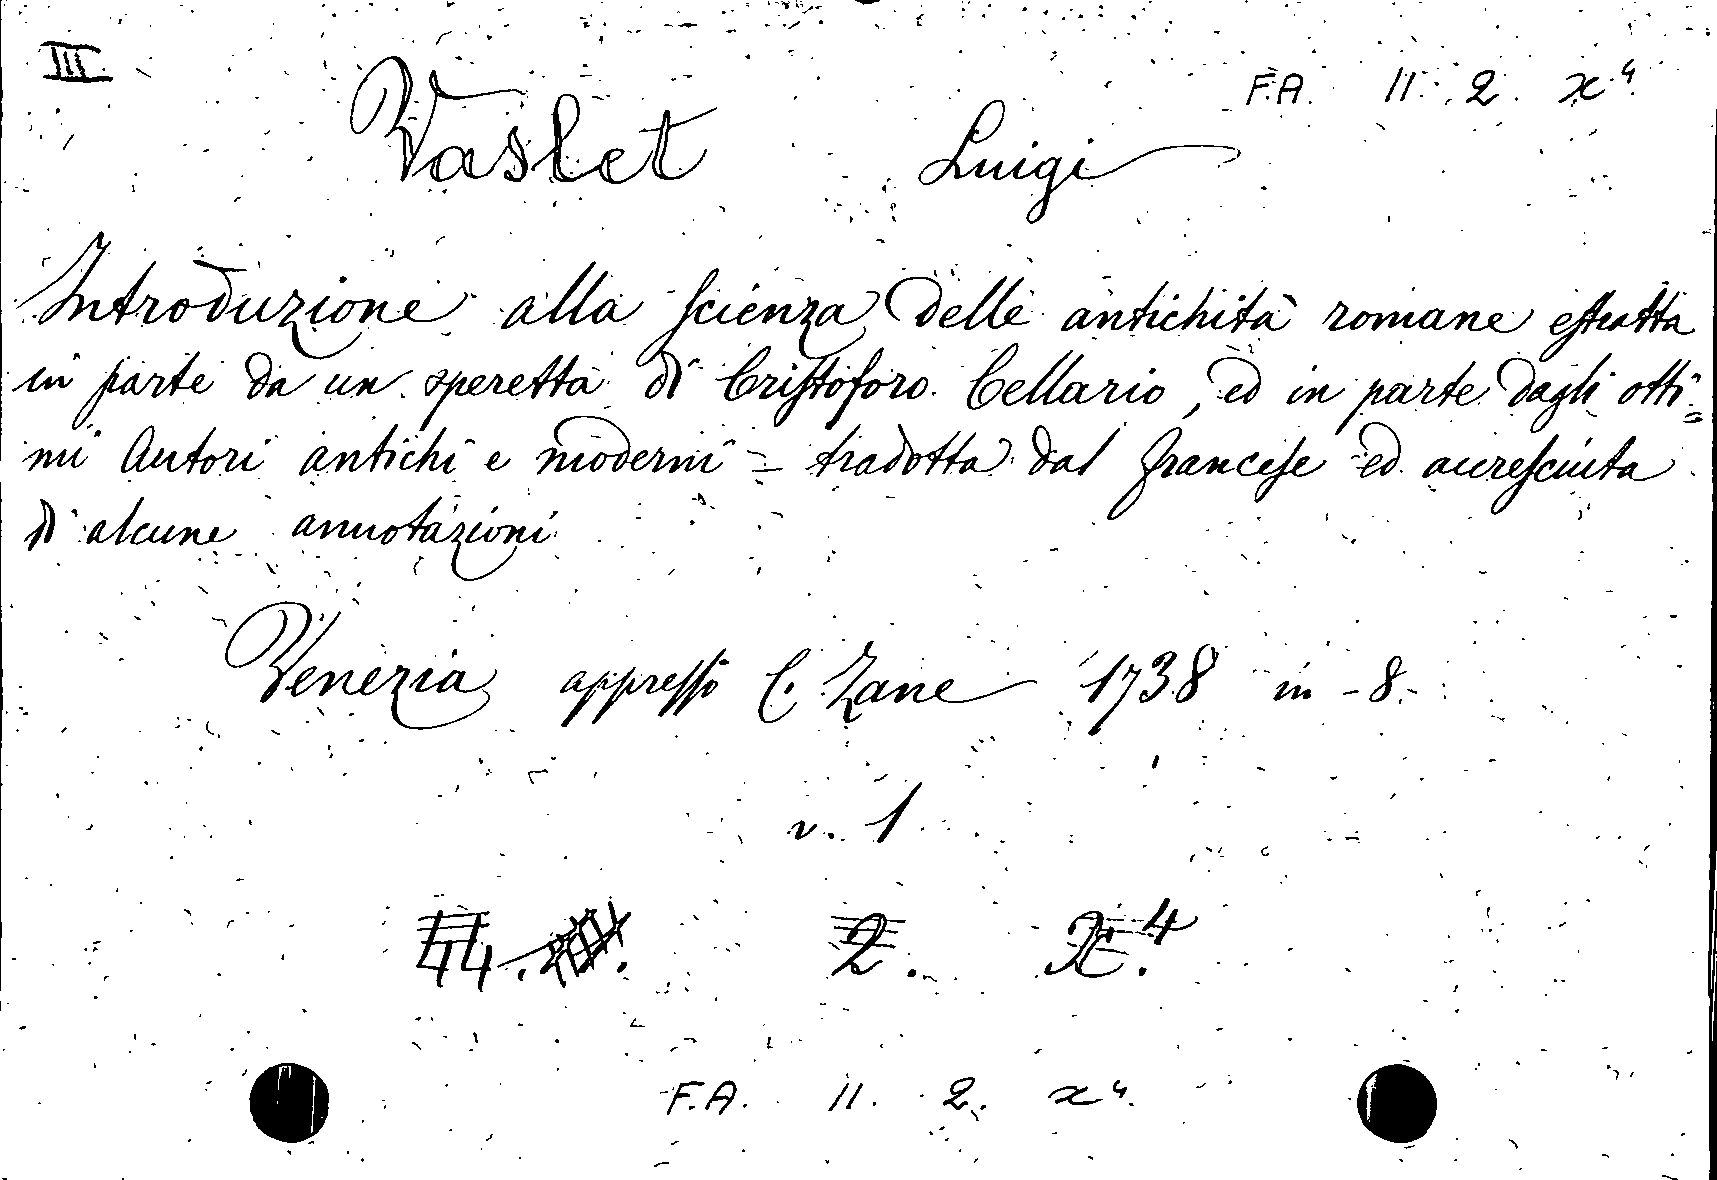 III
F.A. 11. 2. x⁴
Vaslet Luigi
Introduzione alla scienza delle antichità romane estratta
in parte da un operetta di Cristoforo Cellario, ed in parte dagli otti=
mi Autori antichi e moderni = tradotta dal francese ed accresciuta
di alcune annotazioni
Venezia appresso C. Zane 1738 in -8-
v. 1
44. 2. X.⁴
F.A. 11. 2. x⁴.